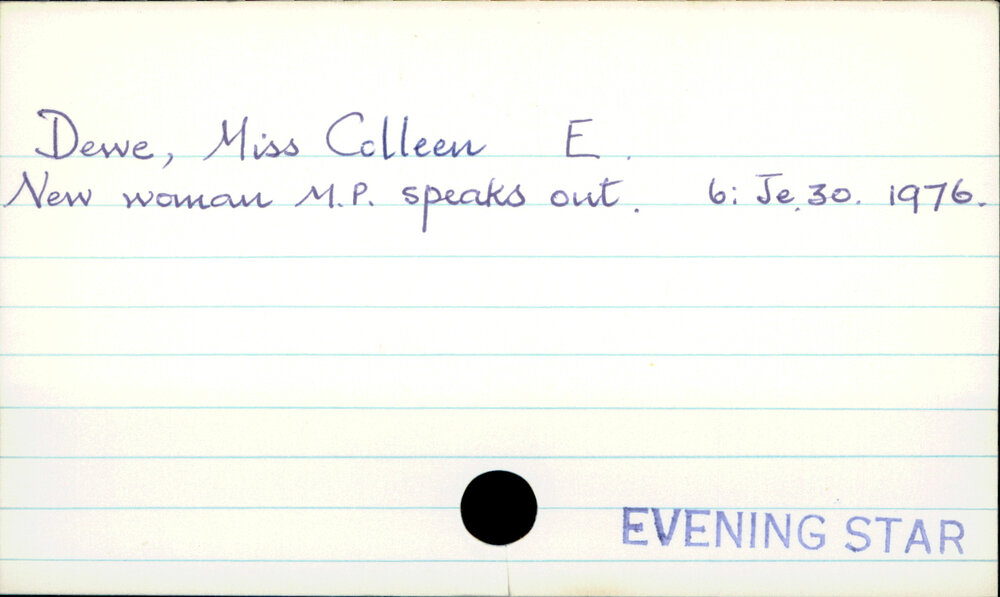 Dewe, Miss Colleen E.
New woman M.P. speaks out. 6: Je. 30. 1976.
EVENING STAR